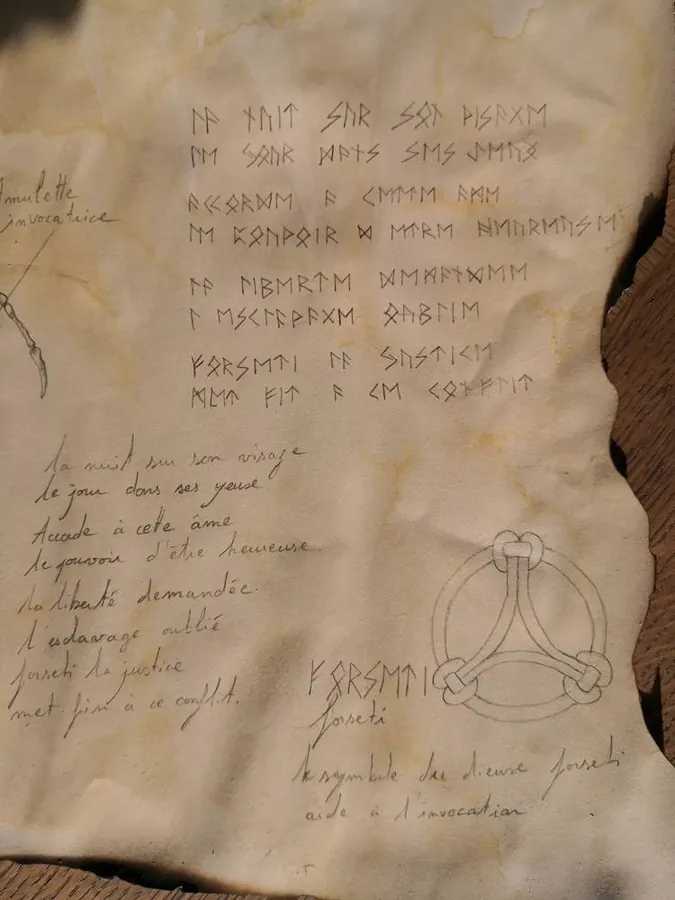 ᛚᚨ ᚾᚢᛁᛏ ᛊᚢᚱ ᛊᛟᚾ ᚹᛁᛊᚨᚷᛖ
ᛚᛖ ᛃᛟᚢᚱ ᛞᚨᚾᛊ ᛊᛖᛊ
ᚨᚲᚲᛟᚱᛞᛖ ᚨ ᚲᛖᛏᛏᛖ ᚨᛗᛖ
ᛚᛖ ᛈᛟᚢᚹᛟᛁᚱ ᛞ ᛖᛏᚱᛖ ᚺᛖᚢᚱᛖᚢᛊᛖ
ᛚᚨ ᛚᛁᛒᛖᚱᛏᛖ ᛞᛖᛗᚨᚾᛞᛖᛖ
ᛚ ᛖᛊᚲᛚᚨᚹᚨᚷᛖ ᛟᚢᛒᛚᛁᛖ
ᚠᛟᚱᛊᛖᛏᛁ ᛚᚨ ᛃᚢᛊᛏᛁᚲᛖ
ᛗᛖᛏ ᚨ ᚲᛖ ᚲᛟᚾᚠᛚᛁᛏ
Amulette
invocatrice
la nuit su son visage
le jour dans ses yeuse
à cette âme
le pouvoir d'être heureuse.
la liberté demandée.
l'esclavage oublié
forseti la justice
met fin à ce conflit.
ᚠᛟᚱᛊᛖᛏᛁ
forseti
le symbole du dieuse forseti
aide à l'invocation